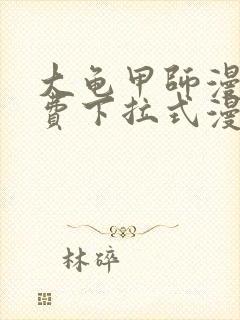 大龟甲師漫
費下拉式漫
林碎